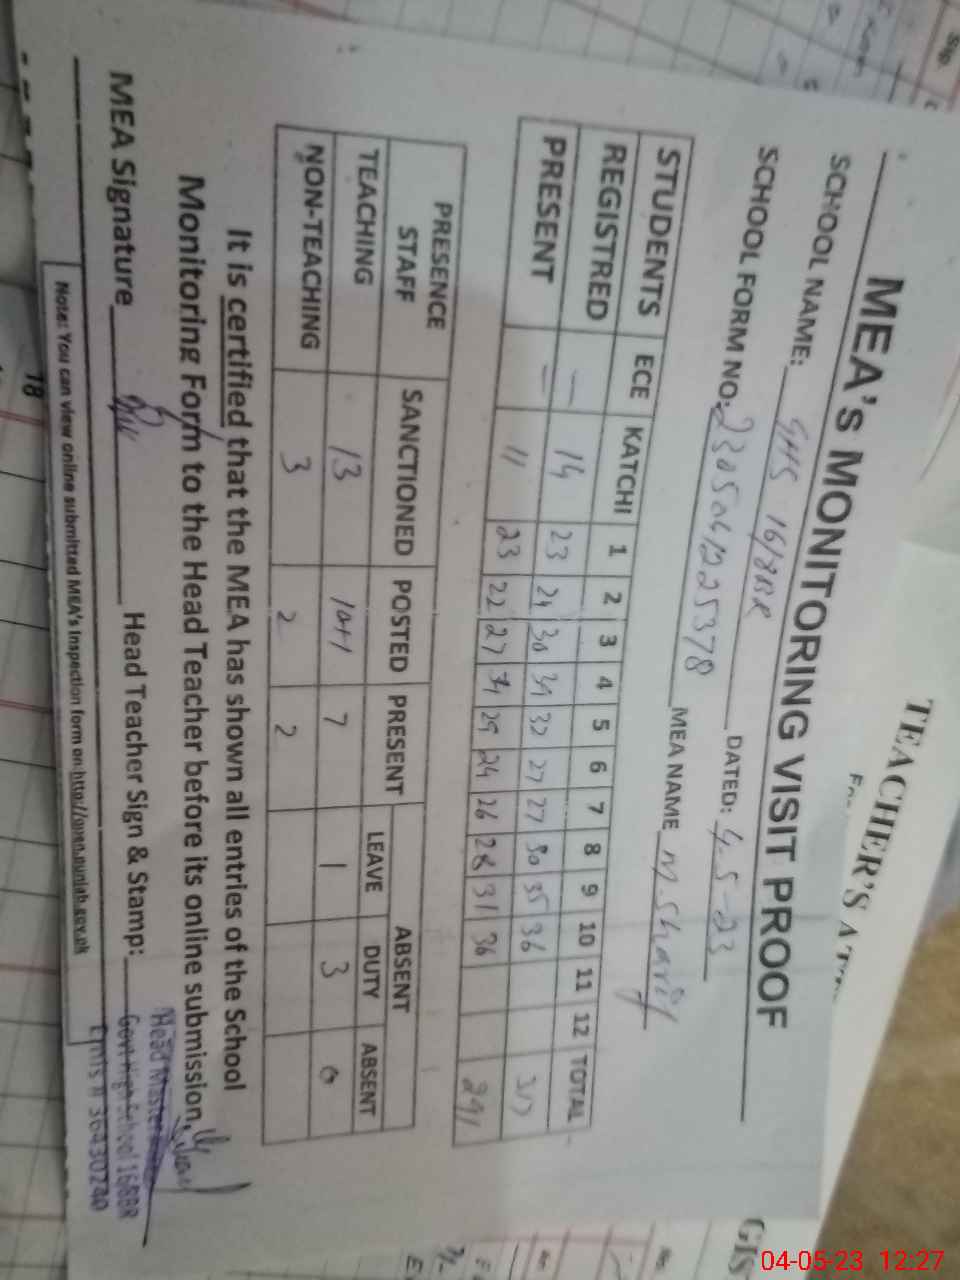 MEA's MONITORING VISIT PROOF
SCHOOL NAME: GHS 16/8BR
SCHOOL FORM NO: DATED: 4-5-23
MEA NAME M. Sharif
STUDENTS ECE KATCHI 1 2 3 4 5 6 7 8 9 10 11 12 TOTAL
REGISTRED — 14 23 24 30 39 32 27 27 30 35 36
PRESENT — 11 23 22 27 29 24 26 28 31 36 291
PRESENCE STAFF SANCTIONED POSTED PRESENT ABSENT
LEAVE DUTY ABSENT
TEACHING 13 10+1 7 1 3 0
NON-TEACHING 3 2 2
It is certified that the MEA has shown all entries of the School
Monitoring Form to the Head Teacher before its online submission.
MEA Signature Head Teacher Sign & Stamp:
Head Master
Govt High School 16/8BR
Emis # 36430240
Note: You can view online submitted MEA's Inspection form on http://open.punjab.gov.pk
18
TEACHER'S
04-05-23 12:27